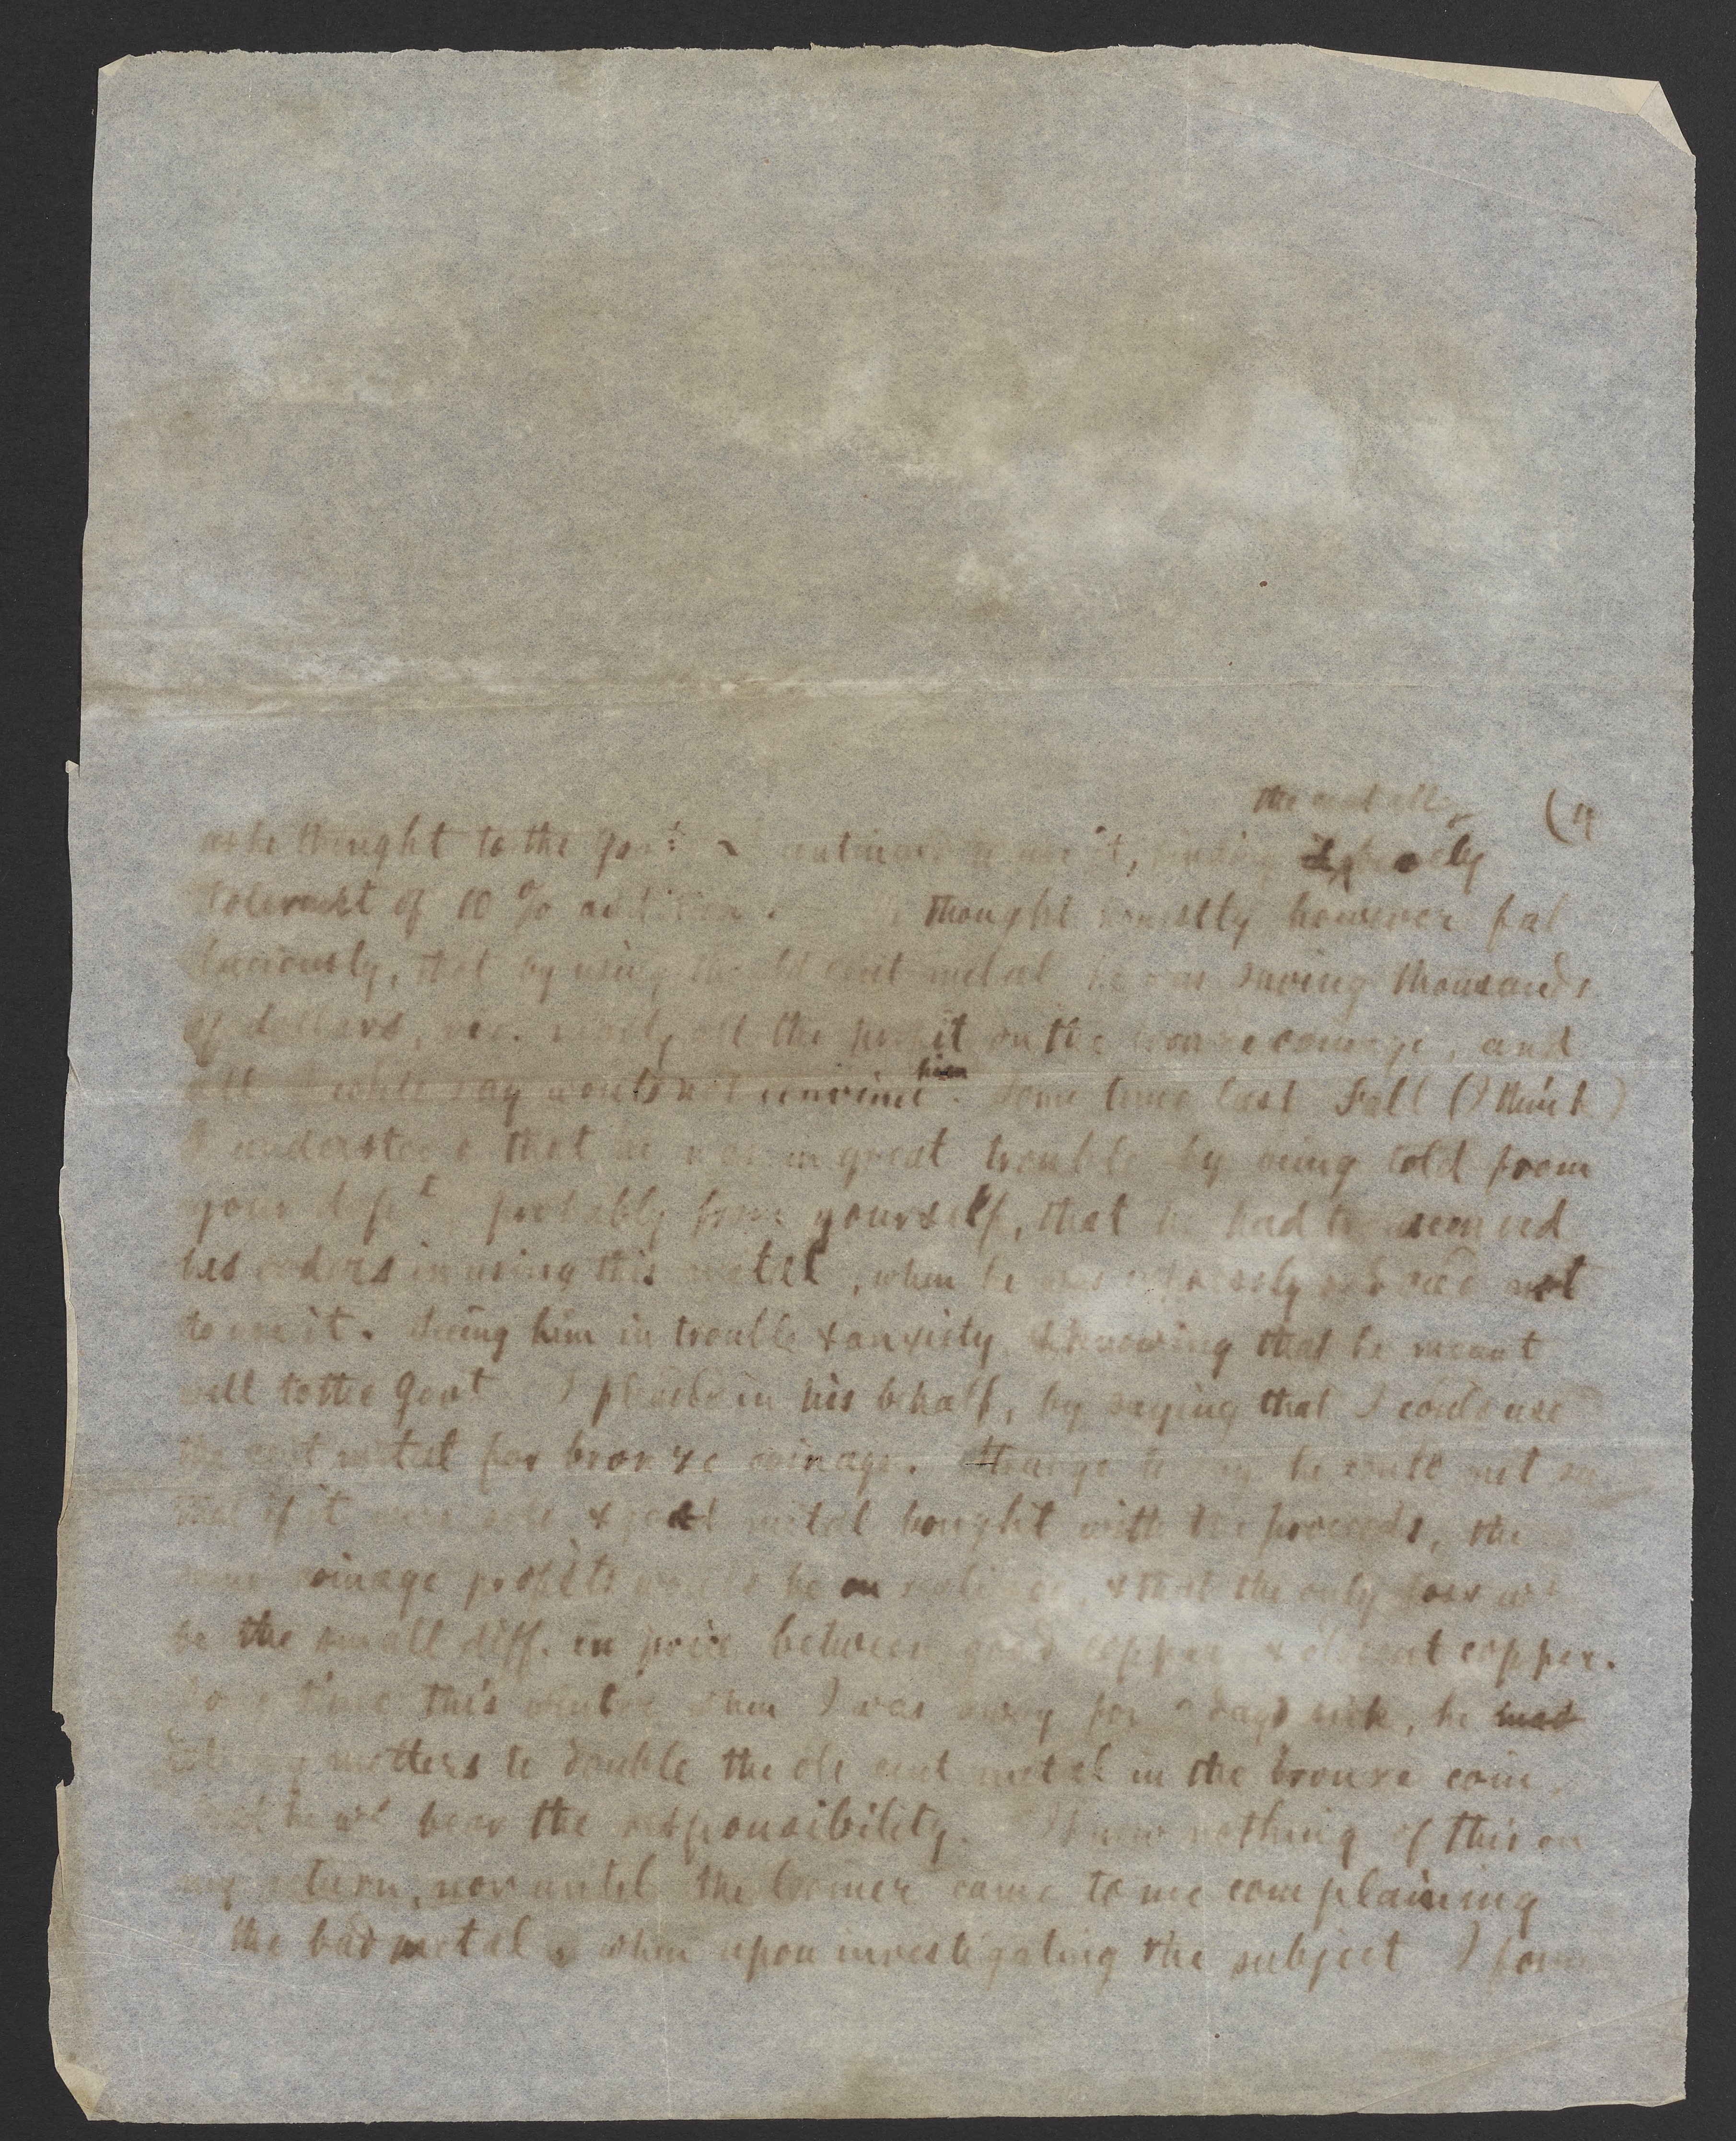 the cent alloy (4
as he thought to the Govt. & continued to use it, making barely
tolerant of 10 % addition. He thought honestly however fal
laciously, that by using the old cent metal he was saving thousands
of dollars, nearly all the profit on the bronze coinage, and
all I could say would not convince him. Some time last Fall (I think)
I understood that he was in great trouble by being told from
your dept probably from yourself, that he had transcended
his orders in using this metal, when he was expressly ordered not
to use it. Seeing him in trouble & anxiety & knowing that he meant
well to the Govt I pleaded in his behalf, by saying that I could use
the cent metal for bronze coinage. Strange to say he could not see
that if it were sold & good metal bought with the proceeds, the
same coinage profits would be realized, & that the only loss wd
be the small diff. in price between good copper & old cent copper.
Some time this winter when I was away for days sick, he
told my melters to double the old cent metal in the bronze coin,
that he wd bear the responsibility. I knew nothing of this on
my return, nor until the Coiner came to me complaining
of the bad metal & when upon investigating the subject I foun